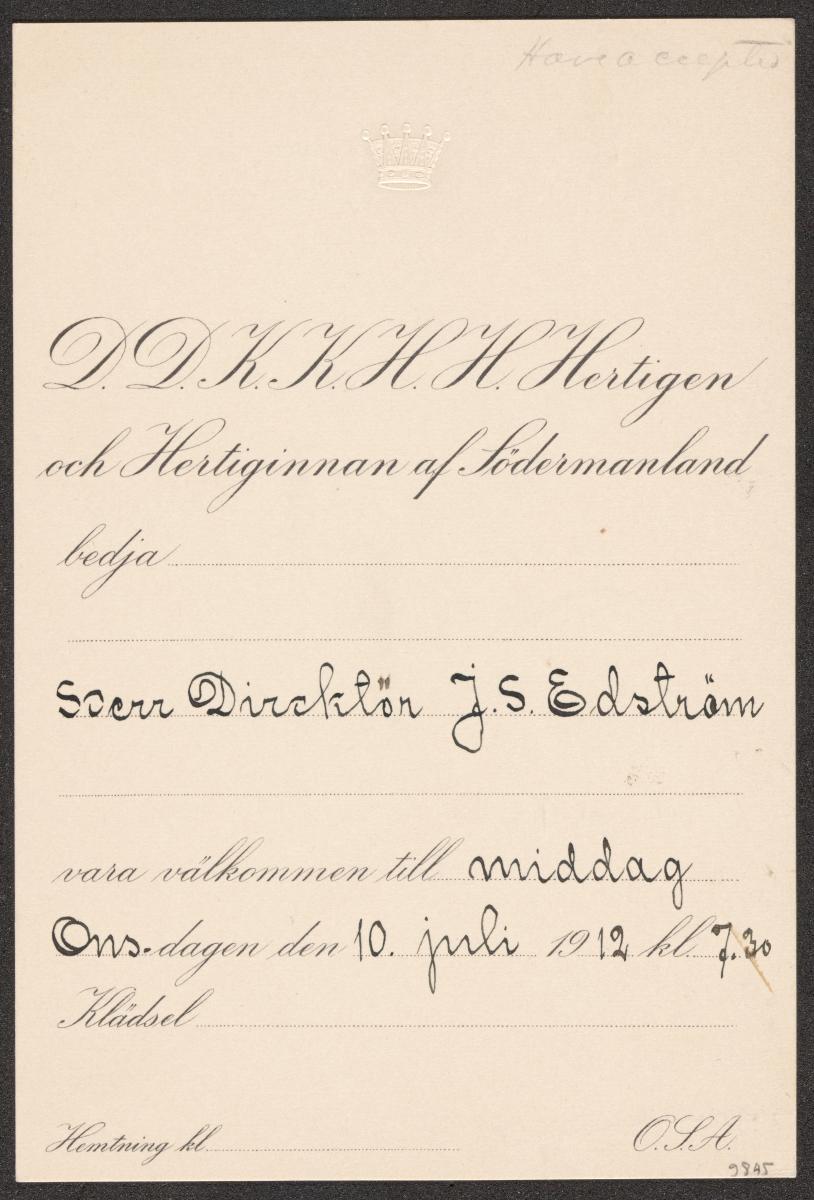 Have accepted
D. D. K. K. H. H. Hertigen
och Hertiginnan af Södermanland
bedja
Herr Direktör J. S. Edström
vara välkommen till middag
Ons-dagen den 10. juli 1912 kl. 7.30
Klädsel
Hemtning kl.
O.S.A.
9845